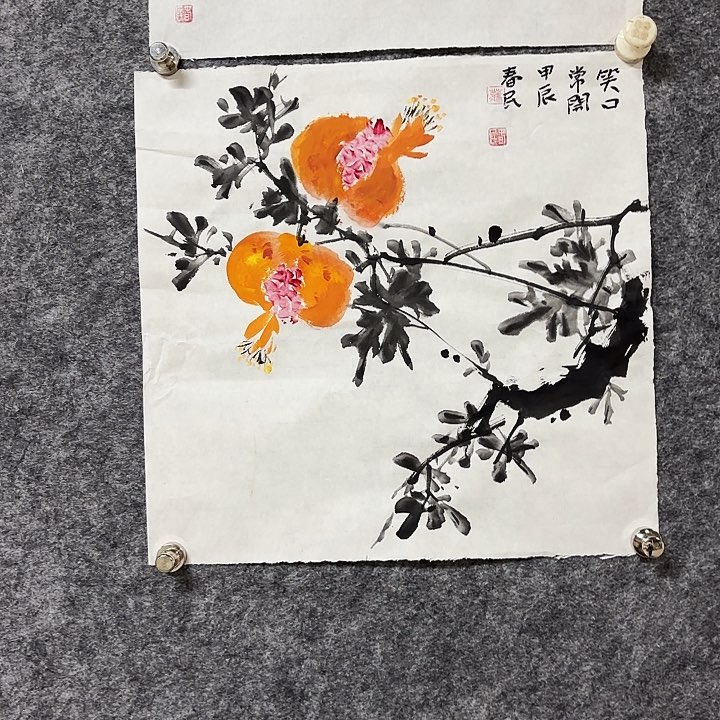 笑口
常開
甲辰
春民